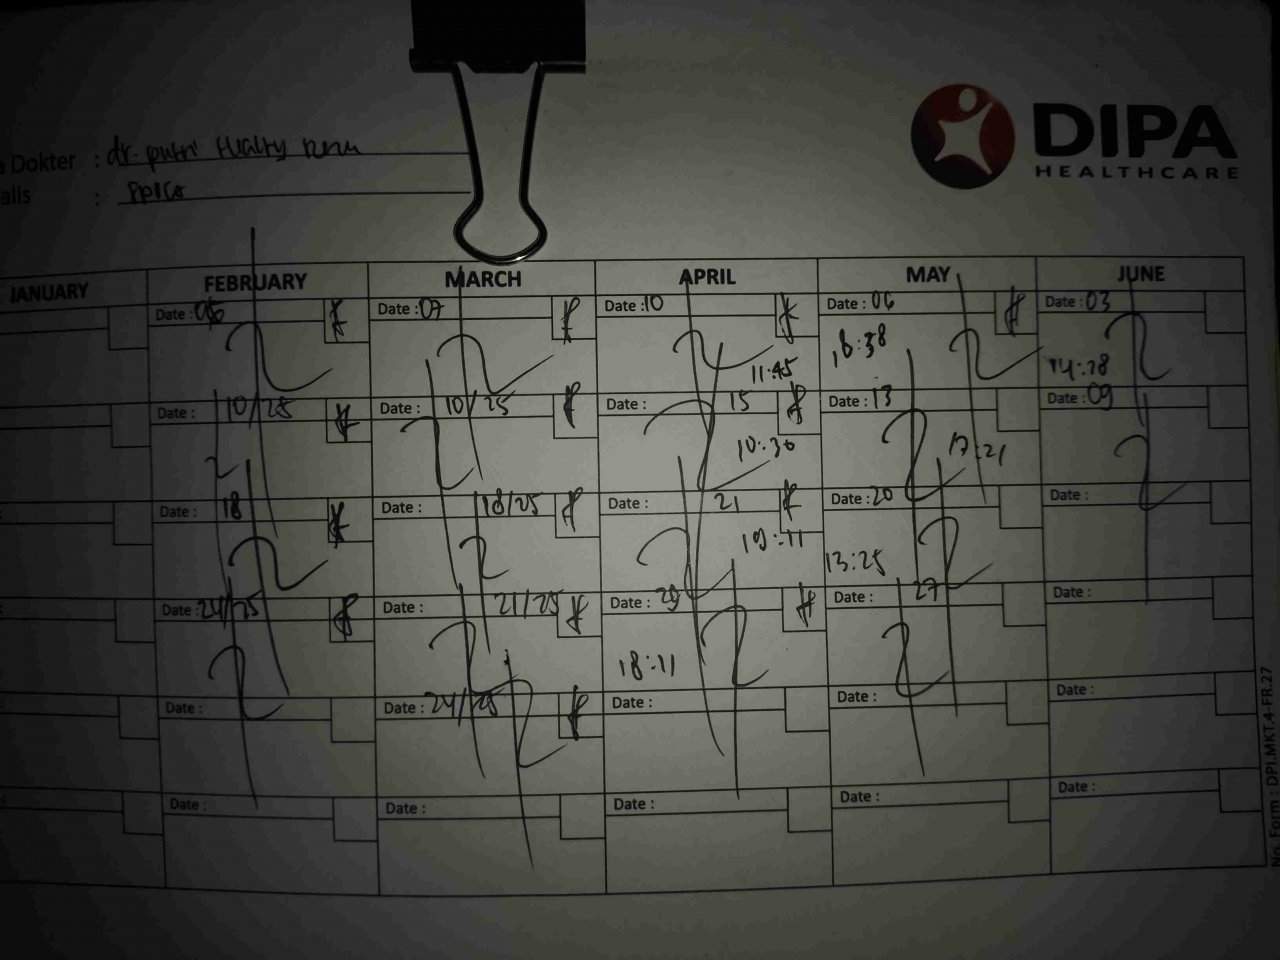 DIPA
HEALTHCARE
Dokter : dr. putri
alls :
JANUARY FEBRUARY MARCH APRIL MAY JUNE
Date : 06 Date : 07 Date : 10 Date : 06 Date : 03
11:45 14:28
Date : 10/25 Date : 10/25 Date : 15 Date : 13 Date : 09
10:30 17:21
Date : 18 Date : 18/25 Date : 21 Date : 20 Date :
19:11 13:25
Date : 24/25 Date : 21/25 Date : 29 Date : 27 Date :
18:11
Date : Date : 24/25 Date : Date : Date :
Date : Date : Date : Date : Date :
No. Form : DPI.MKT.4-FR.27